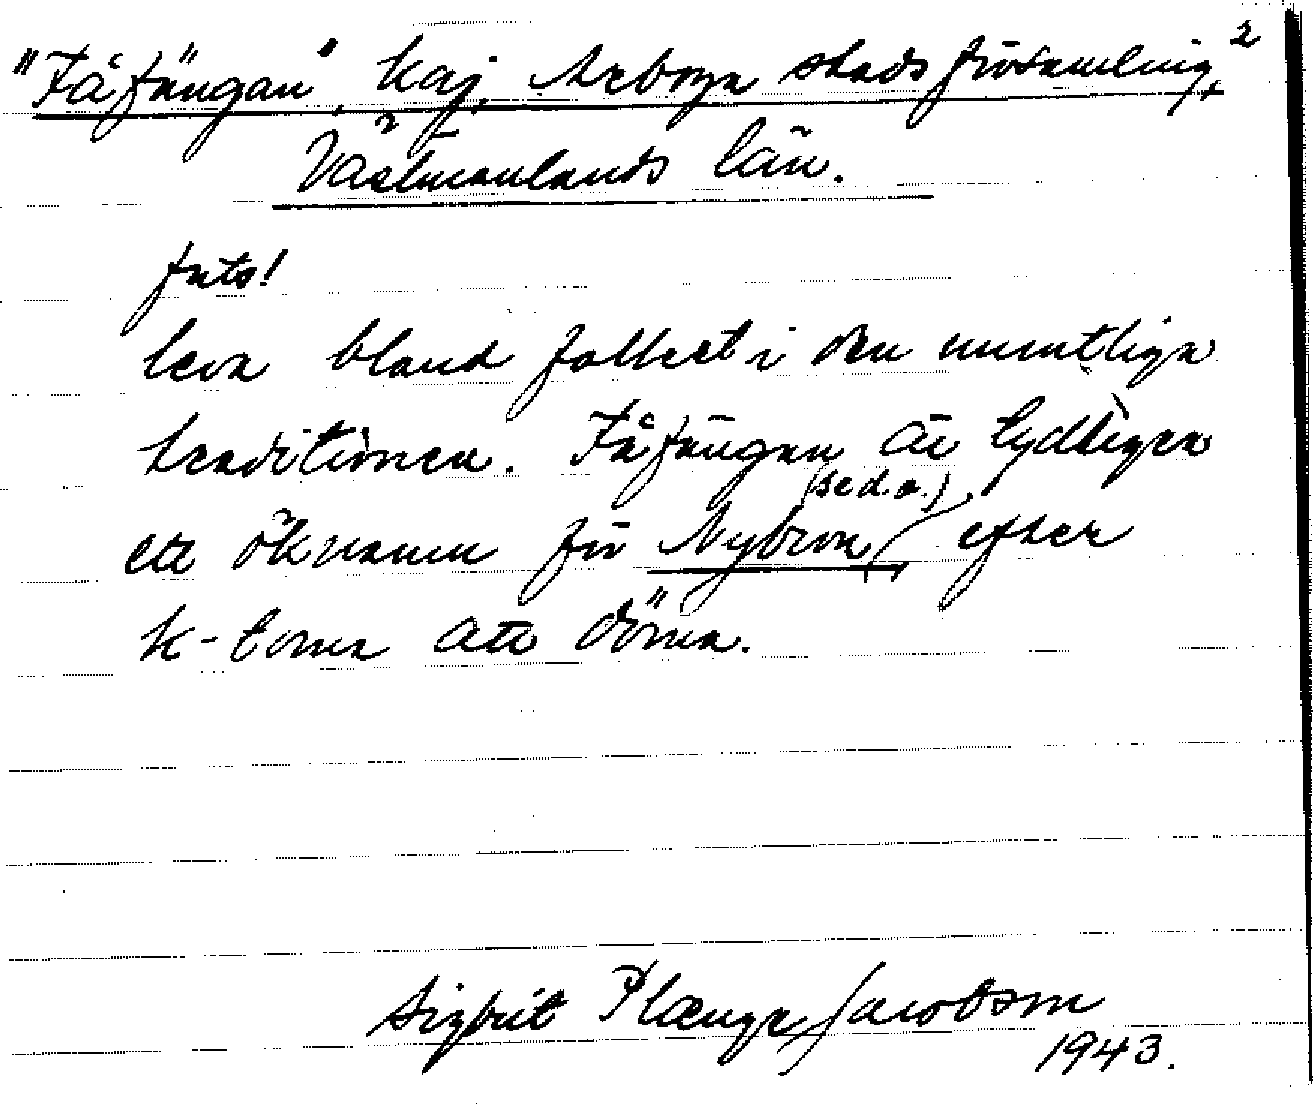 2
"Fåfängan", kaj, Arboga stadsförsamling,
Västmanlands län.
forts!
leva bland folket i den muntliga
traditionen. Fåfängan är tydligen
ett öknamn för Nybron (se d.o.), efter
k-torna att döma.
Sigbrit Plænge Jacobson
1943.